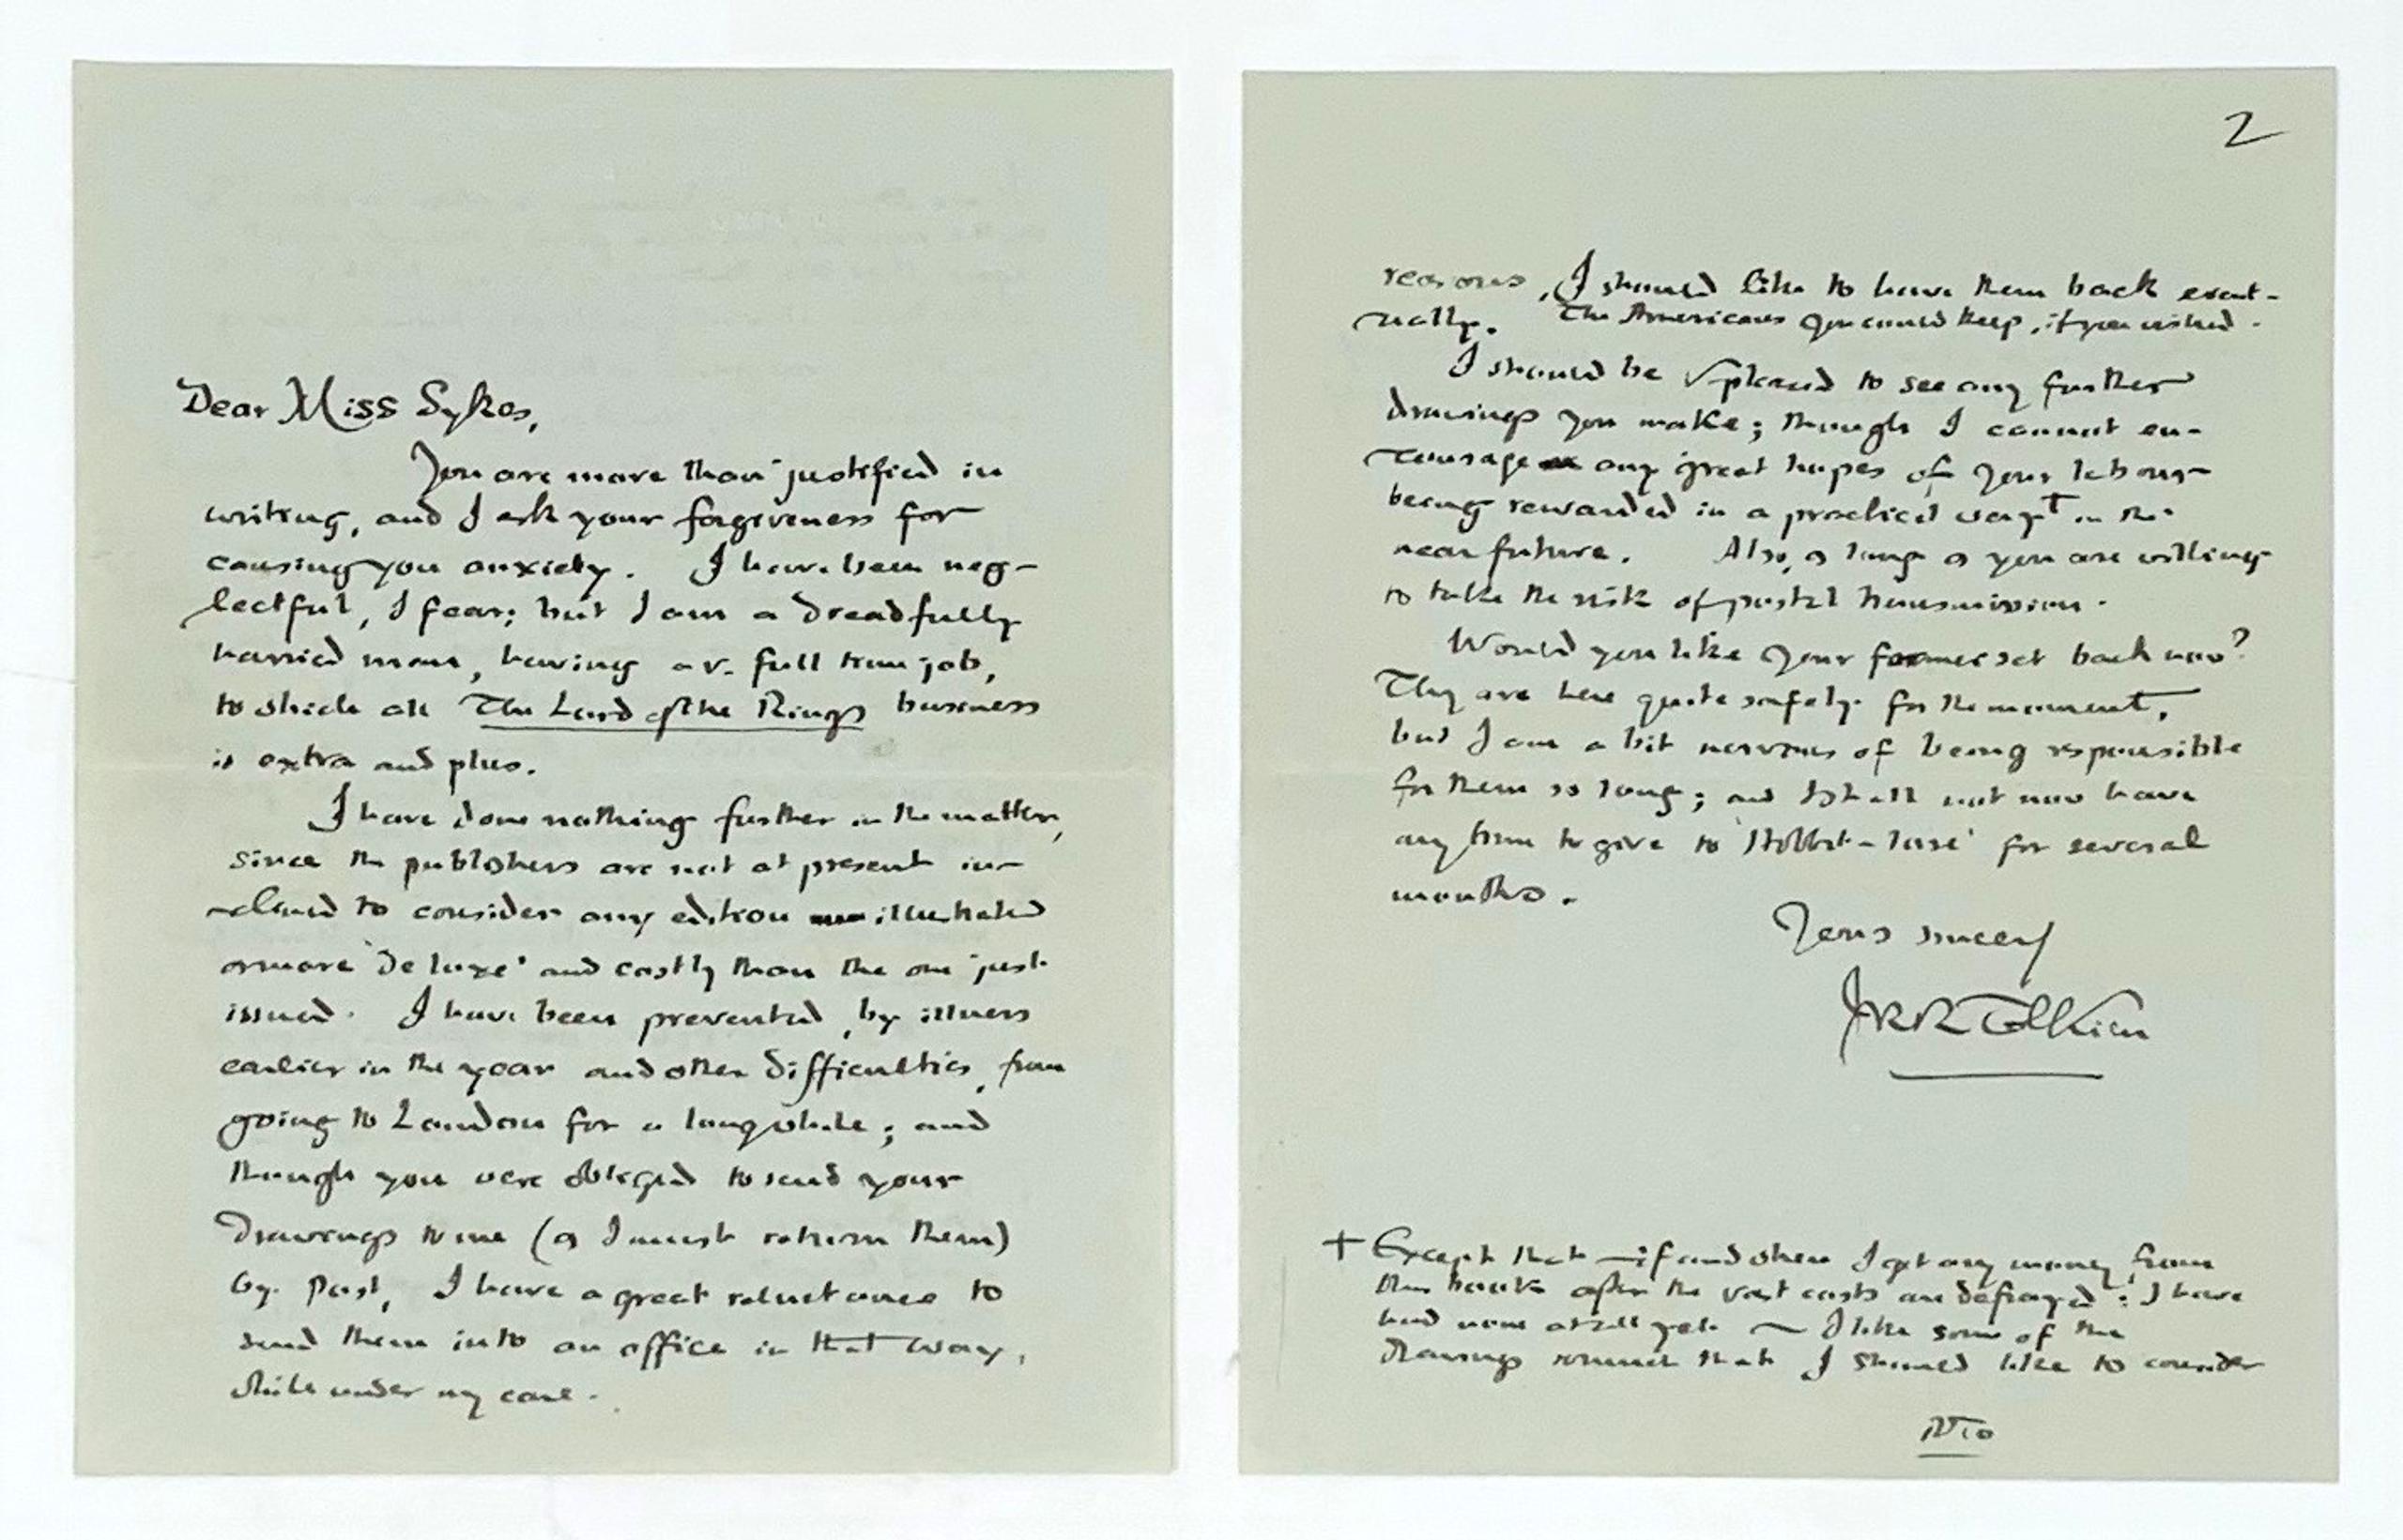 Dear Miss Sykes,
You are more than justified in
writing, and I ask your forgiveness for
causing you anxiety. I have been neg-
lectful, I fear; but I am a dreadfully
harried man, having a v. full time job,
to which all The Lord of the Rings business
is extra and plus.
I have done nothing further in the matter,
since the publishers are not at present in-
clined to consider any edition illustrated
or more 'de luxe' and costly than the one just
issued. I have been prevented, by illness
earlier in the year and other difficulties, from
going to London for a long while; and
though you were obliged to send your
drawings to me (as I must return them)
by post, I have a great reluctance to
send them into an office in that way,
while under my care.
2
reasons, I should like to have them back event-
ually. The Americans you could keep, if you wished.
I should be v. pleased to see any further
drawings you make; though I cannot en-
courage any great hopes of your labour
being rewarded in a practical way† in the
near future. Also, as long as you are willing
to take the risk of postal transmission.
Would you like your former set back now?
They are here quite safely for the moment,
but I am a bit nervous of being responsible
for them so long; and I shall not now have
any time to give to 'Hobbit-lore' for several
months.
Yours sincerely
JRR Tolkien
† Except that – if and when I get any money from
this book after the vast costs are defrayed: I have
had none at all yet – I like some of the
drawings so much that I should like to consider
PTO